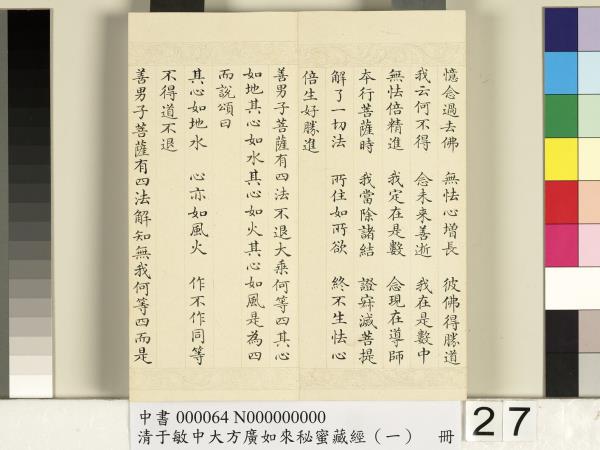 憶念過去佛　無怯心增長　彼佛得勝道
我云何不得　念未來善逝　我在是數中
無怯倍精進　我定在是數　念現在導師
本行菩薩時　我當除諸結　證寂滅菩提
解了一切法　所住如所欲　終不生怯心
倍生好勝進
善男子菩薩有四法不退大乘何等四其心
如地其心如水其心如火其心如風是為四
而說頌曰
其心如地水　心亦如風火　作不作同等
不得道不退
善男子菩薩有四法解知無我何等四而是
中書 000064 N000000000
清于敏中大方廣如來秘蜜藏經（一）　冊
27